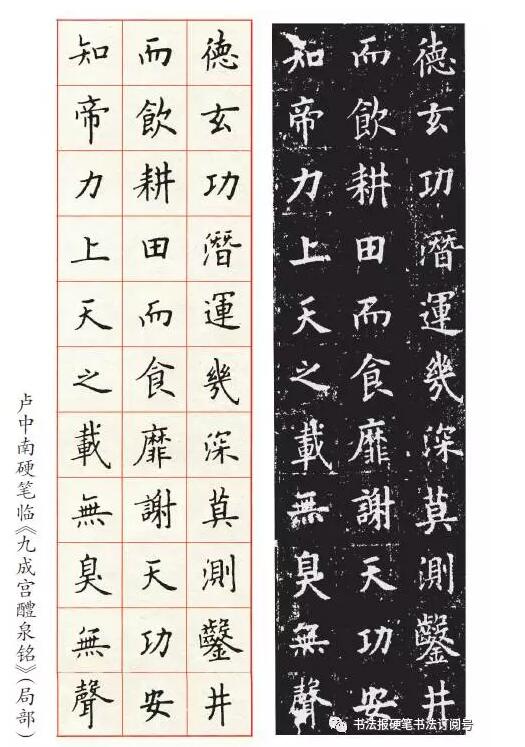 德玄功潛運幾深莫測鑿井
而飲耕田而食靡謝天功安
知帝力上天之載無臭無聲
德玄功潛運幾深莫測鑿井
而飲耕田而食靡謝天功安
知帝力上天之載無臭無聲
卢中南硬笔临《九成宫醴泉铭》(局部)
书法报硬笔书法订阅号